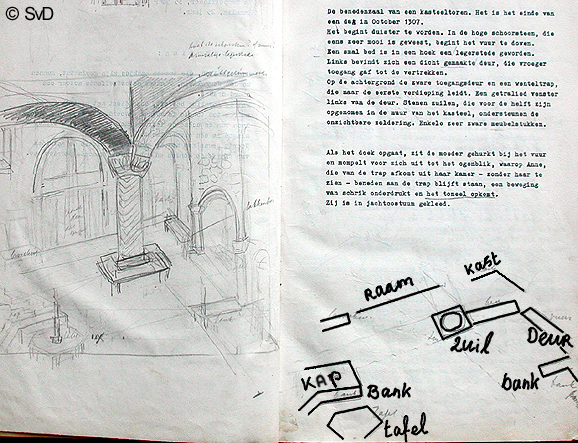 © SvD
De benedenzaal van een kasteeltoren. Het is het einde van
een dag in October 1307.
Het begint duister te worden. In de hoge schoorsteen, die
eens zeer mooi is geweest, begint het vuur te doven.
Een smal bed is in een hoek een legerstede geworden.
Links bevindt zich een dicht gemaakte deur, die vroeger
toegang gaf tot de vertrekken.
Op de achtergrond de zware toegangsdeur en een wenteltrap,
die naar de eerste verdieping leidt. Een getralied venster
links van de deur. Stenen zuilen, die voor de helft zijn
opgenomen in de muur van het kasteel, ondersteunen de
onzichtbare zoldering. Enkele zeer zware meubelstukken.
Als het doek opgaat, zit de moeder gehurkt bij het vuur
en mompelt voor zich uit tot het ogenblik, waarop Anne,
die van de trap afkomt uit haar kamer - zonder haar te
zien - beneden aan de trap blijft staan, een beweging
van schrik onderdrukt en het toneel opkomt.
Zij is in jachtcostuum gekleed.
Kast
Raam
Zuil
Deur
bank
KAP
Bank
tafel